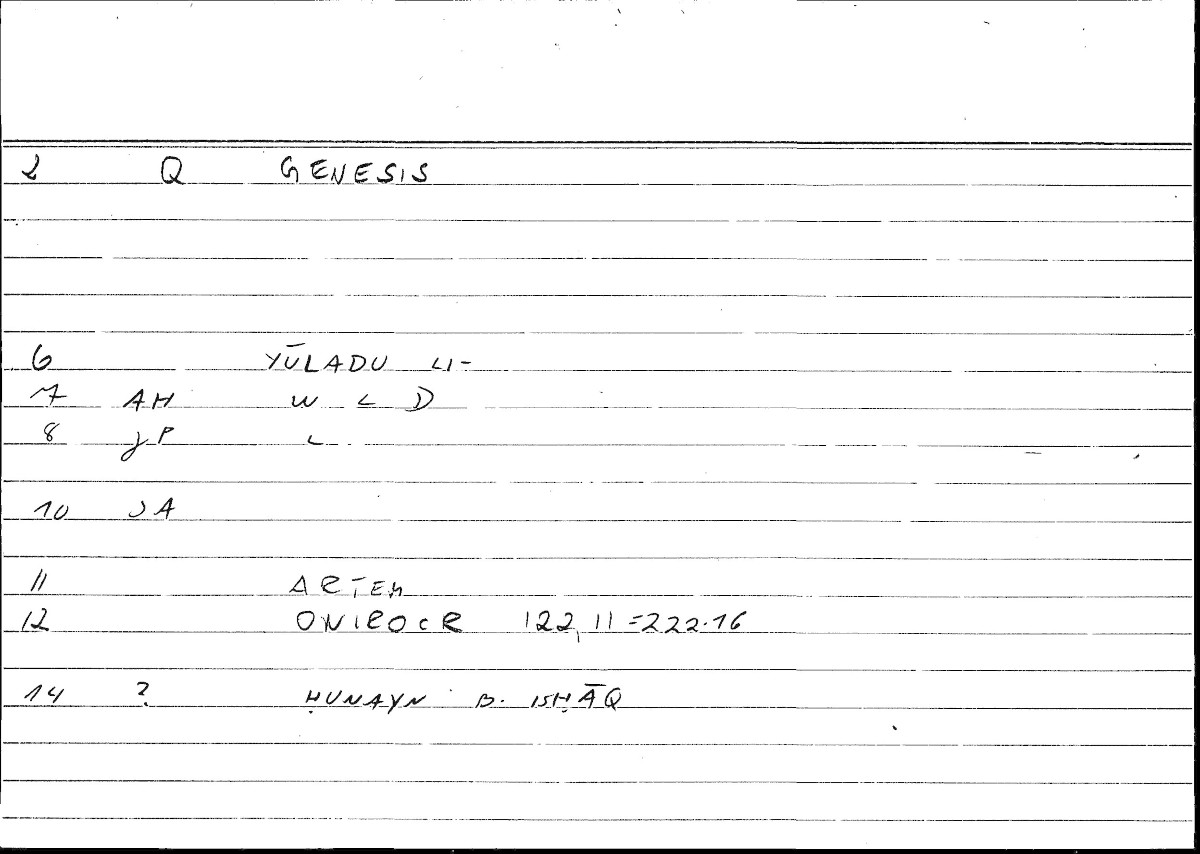 2 Q GENESIS
6 YŪLADU LI-
7 AH W L D
8 JP L
10 JA
11 ARTEM
12 ONIROCR 122,11=222.16
14 ? ḤUNAYN B. ISḤĀQ